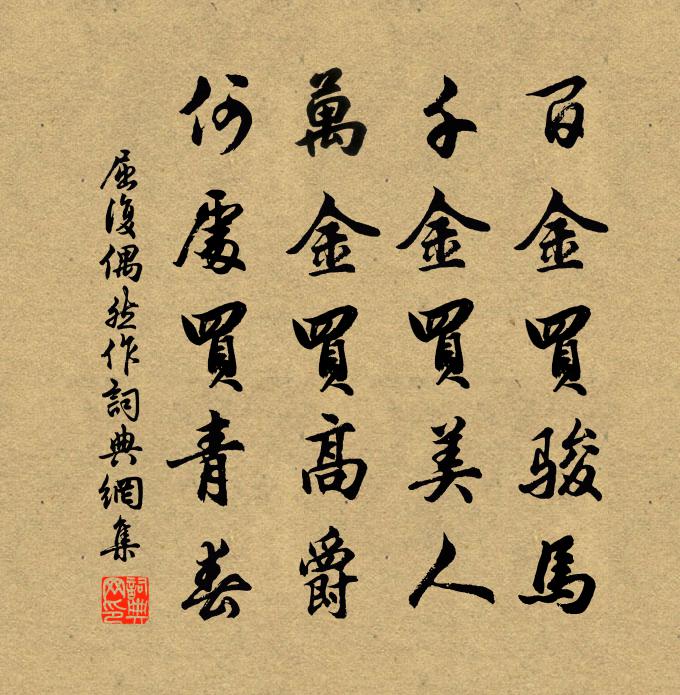 百金買骏馬
千金買美人
萬金買高爵
何處買青春
屈復偶然作詞典網集
詞典網印